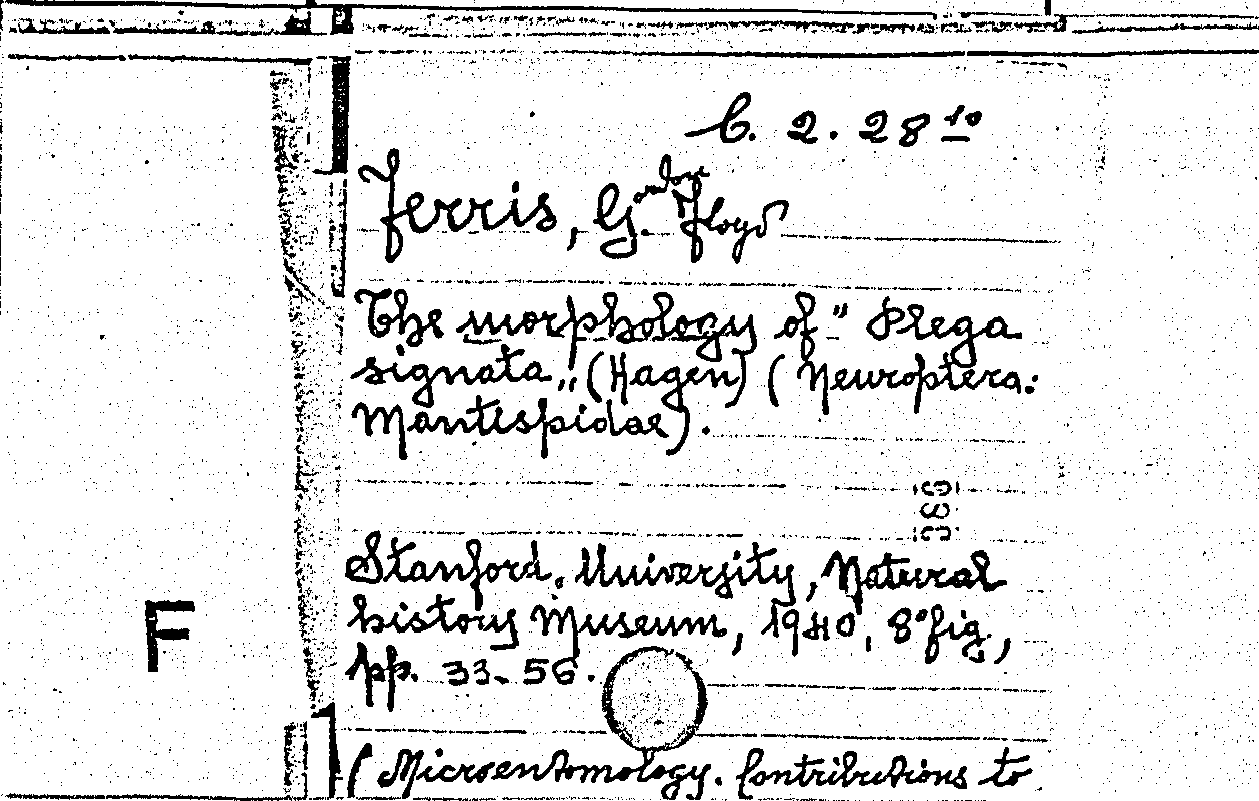 C. 2. 28 10
Ferris, Gordon Floyd
The morphology of "Plega
signata„ (Hagen) (Neuroptera:
Mantispidae).
Stanford. University, Natural
F
history Museum, 1940, 8° fig.,
pp. 33-56.
(Microentomology. Contributions to